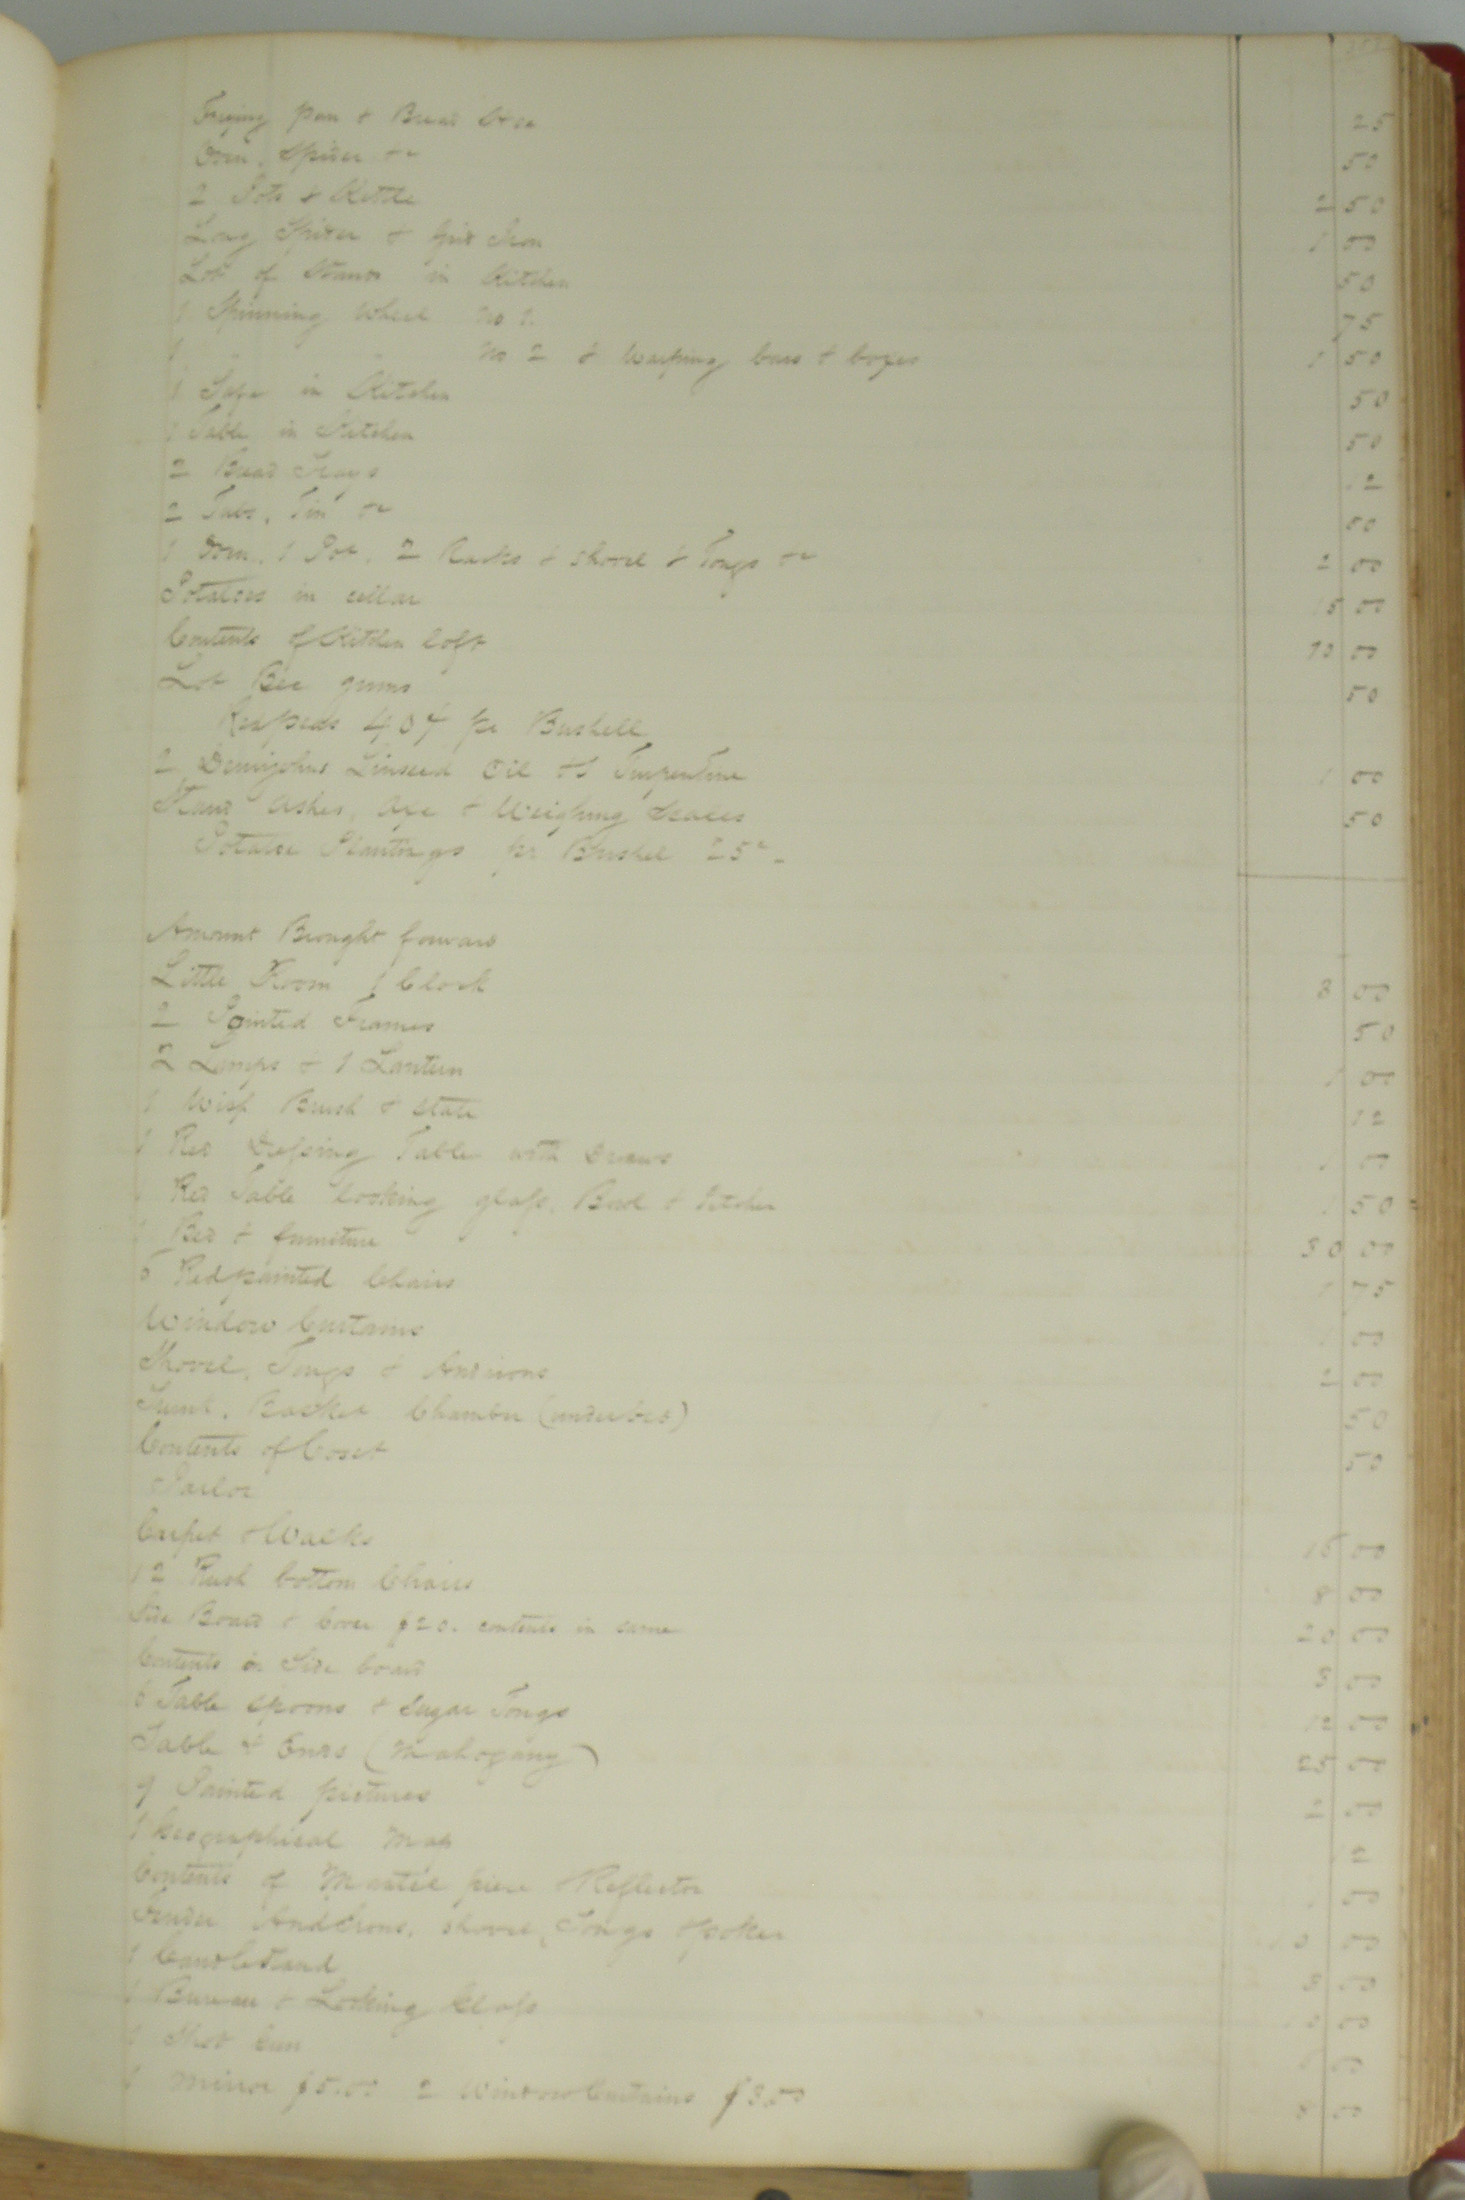 Frying pan & Bread 25
Oven, Spider &c 50
2 Pots & Kettle 2 50
Long Spider & Grid Iron 1 00
Lot of Stands in Kitchen 50
1 Spinning Wheel No 1. 75
1 " " No 2 & Warping bars & boxes 1 50
1 Safe in Kitchen 50
1 Table in Kitchen 50
2 Bread Trays 12
2 Tubs, Tin &c 50
1 Oven, 1 Pot, 2 Racks & shovel & Tongs &c 2 00
Potatoes in cellar 15 00
Contents of Kitchen loft 10 00
Lot Bee gums 50
40 ¢ pr Bushell
2 Demijohns Linseed Oil & Turpentine 1 00
Stand Ashes, Axe & Weighing Scales 50
Potatoe Plantings pr Bushel 25c
Amount Brought forward
Little Room 1 Clock 8 00
2 Painted Frames 50
2 Lamps & 1 Lantern 1 00
1 Wisp Brush & Slate 12
1 Red Dressing Table with Draws 1 00
1 Red Table looking glass, Bowl & Pitcher 1 50
1 Bed & furniture 30 00
Red painted Chairs 1 75
Window Curtains 1 00
Shovel, Tongs & Andirons 2 00
Trunk, Basket Chamber (under bed) 50
Contents of Closet 50
Parlor
Carpet & 15 00
12 Rush bottom Chairs 8 00
Side Board & Cover $20. contents in same 20 00
Contents on Side board 3 00
6 Table spoons & sugar Tongs 12 00
Table & Ends (Mahogany) 25 00
9 Painted pictures 2 00
1 Geographical Map 12
Contents of Mantle piece & Reflector 1 00
Fender Andirons, shovel, Tongs & poker 10 00
1 Candlestand 3 00
1 Bureau & Looking Glass 10 00
1 Shot Gun 00
1 Mirror $5.00 2 Window Curtains $3.00 8 00